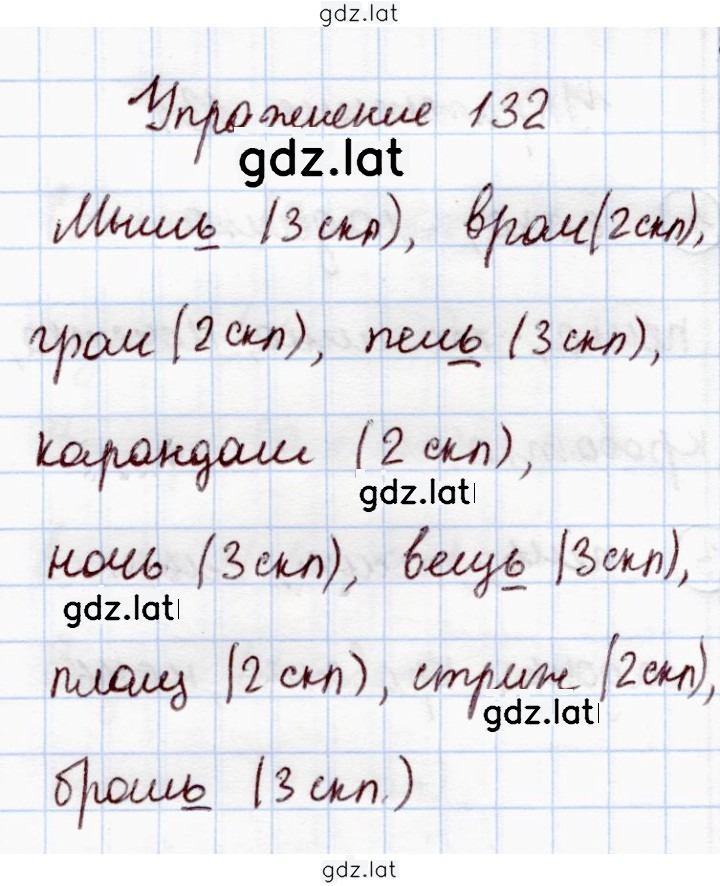 gdz.lat
Упражнение 132
gdz.lat
Мышь (3 скл), врач (2 скл),
грач (2 скл), печь (3 скл),
карандаш (2 скл),
gdz.lat
ночь (3 скл), вещь (3 скл),
gdz.lat
плащ (2 скл), стриж (2 скл),
gdz.lat
брошь (3 скл.)
gdz.lat